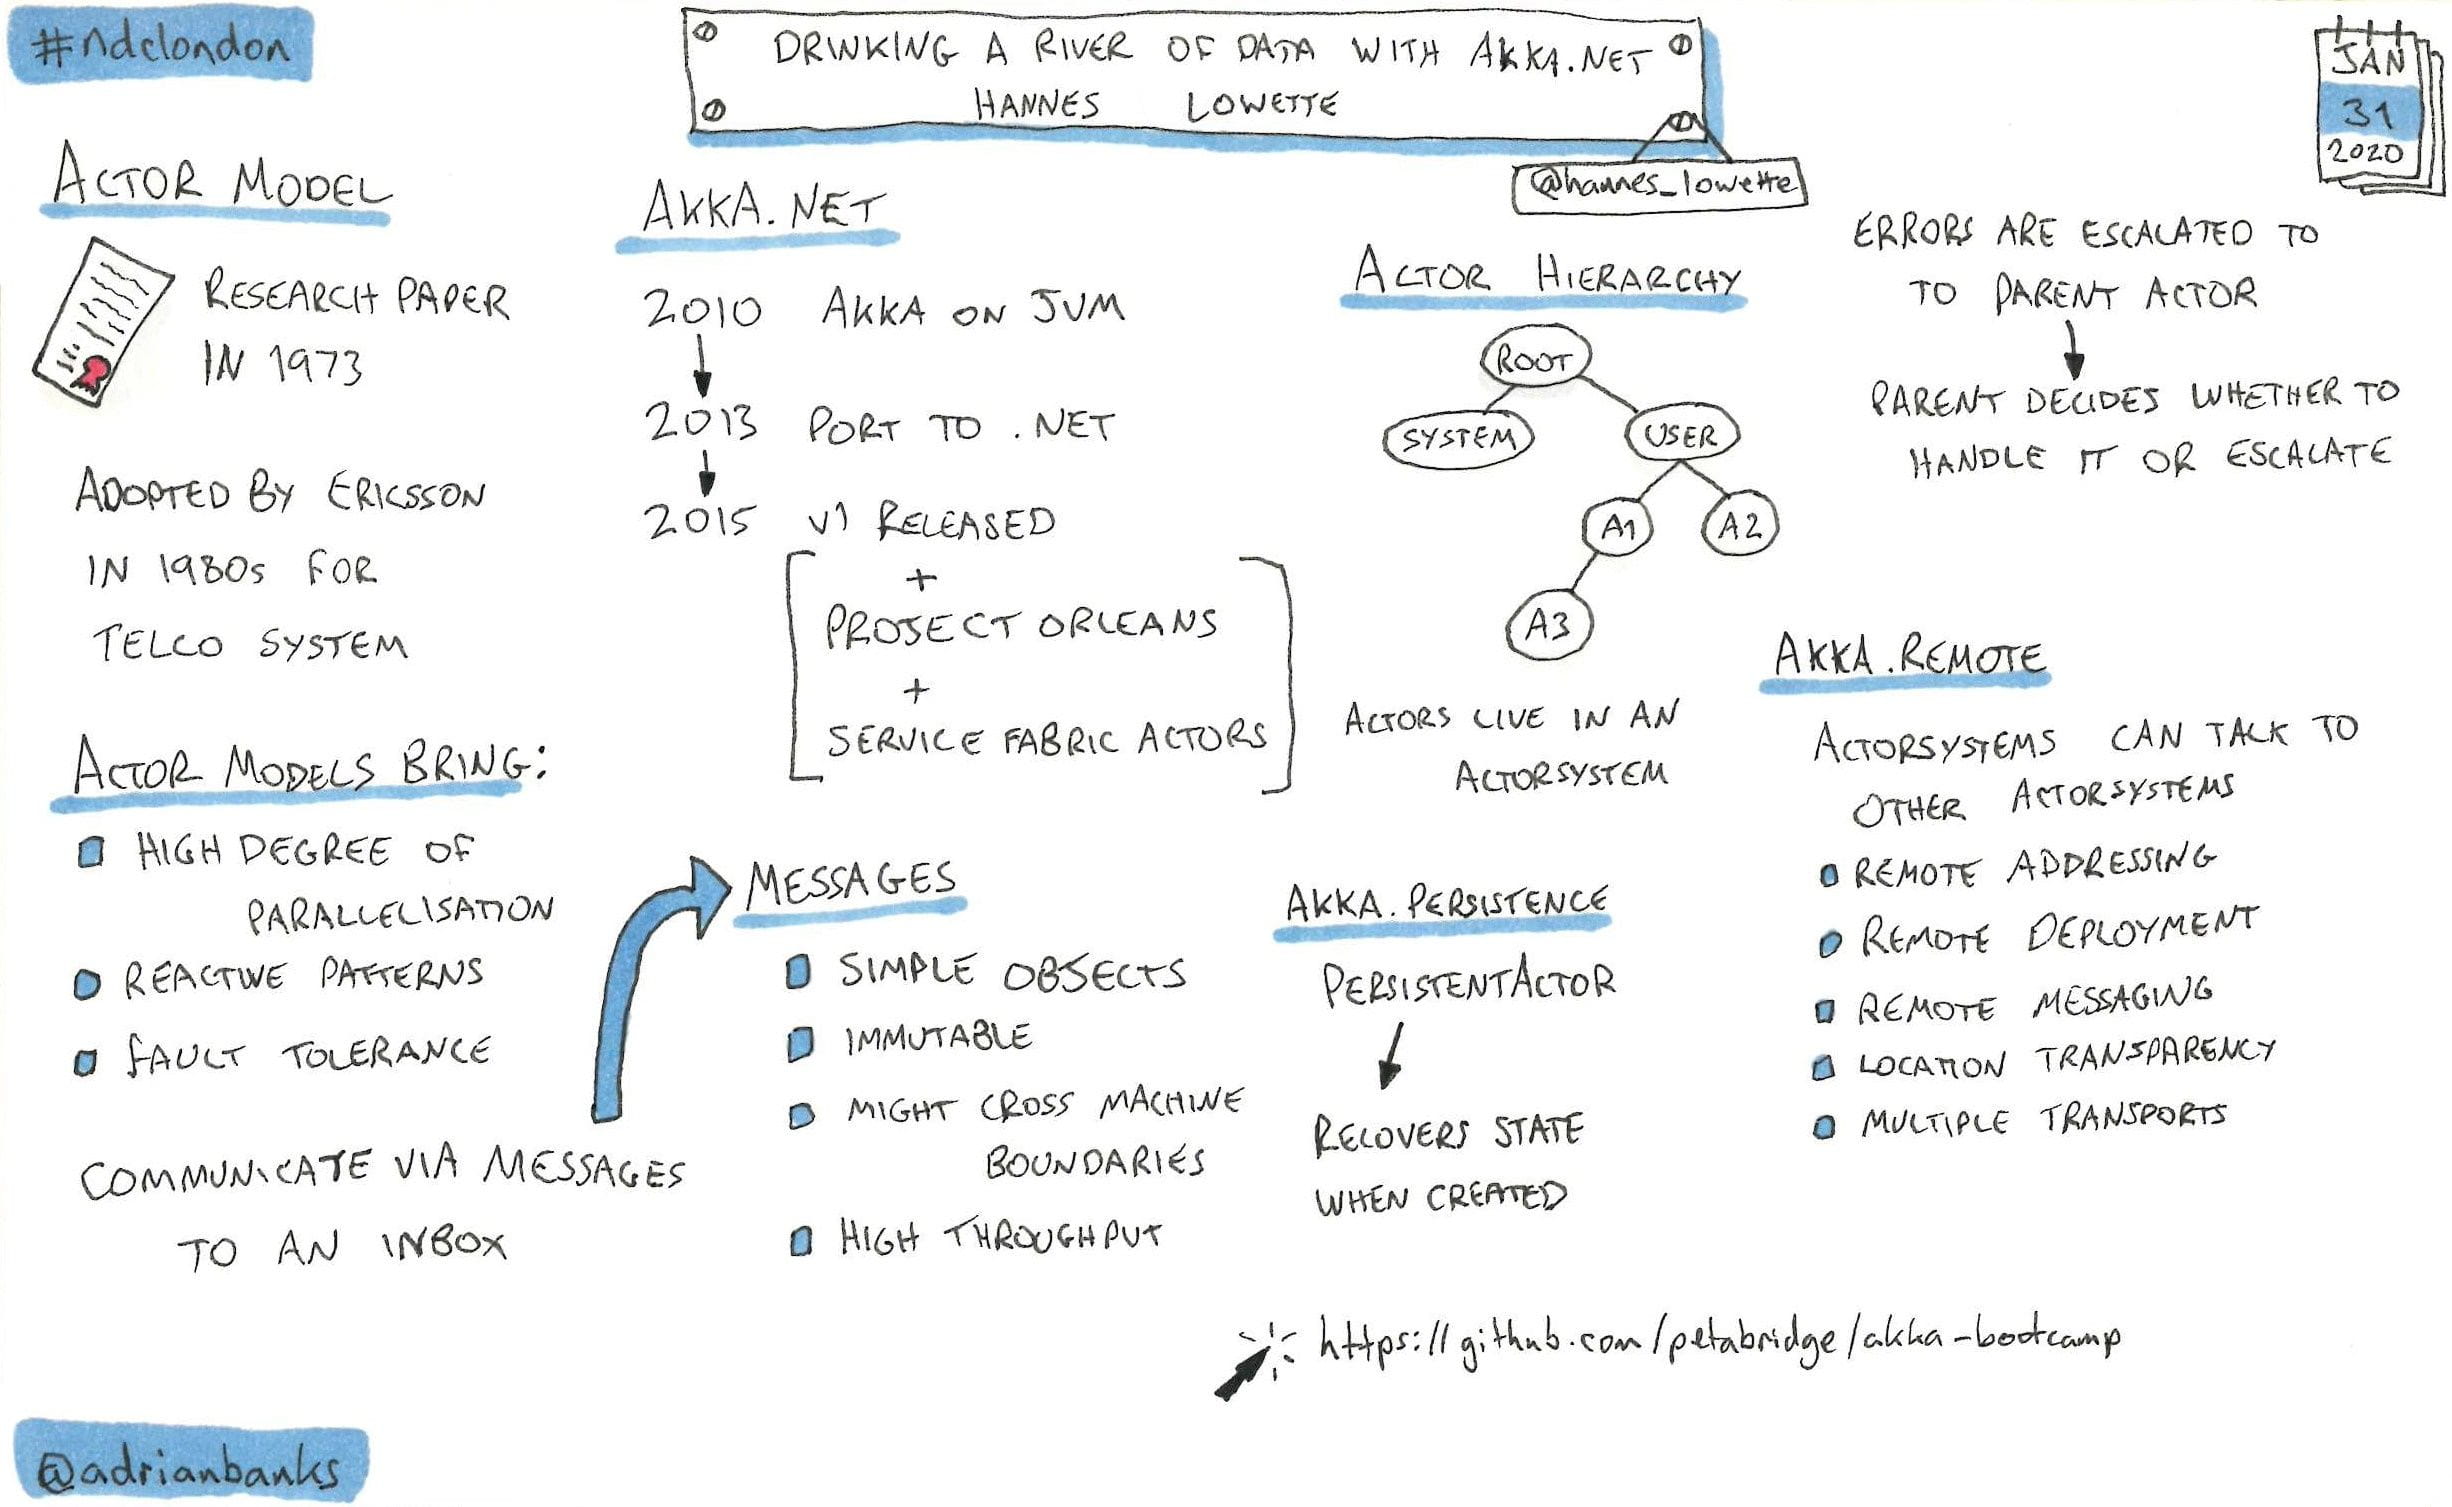 #ndclondon
DRINKING A RIVER OF DATA WITH AKKA.NET
HANNES LOWETTE
@hannes_lowette
JAN
31
2020
ACTOR MODEL
RESEARCH PAPER
IN 1973
ADOPTED BY ERICSSON
IN 1980s FOR
TELCO SYSTEM
ACTOR MODELS BRING:
HIGH DEGREE OF
PARALLELISATION
REACTIVE PATTERNS
FAULT TOLERANCE
COMMUNICATE VIA MESSAGES
TO AN INBOX
AKKA.NET
2010 AKKA ON JVM
2013 PORT TO .NET
2015 V1 RELEASED
+
PROJECT ORLEANS
+
SERVICE FABRIC ACTORS
MESSAGES
SIMPLE OBJECTS
IMMUTABLE
MIGHT CROSS MACHINE
BOUNDARIES
HIGH THROUGHPUT
ACTOR HIERARCHY
ROOT
SYSTEM
USER
A1
A2
A3
ACTORS LIVE IN AN
ACTORSYSTEM
AKKA.PERSISTENCE
PERSISTENTACTOR
RECOVERS STATE
WHEN CREATED
ERRORS ARE ESCALATED TO
TO PARENT ACTOR
PARENT DECIDES WHETHER TO
HANDLE IT OR ESCALATE
AKKA.REMOTE
ACTORSYSTEMS CAN TALK TO
OTHER ACTORSYSTEMS
REMOTE ADDRESSING
REMOTE DEPLOYMENT
REMOTE MESSAGING
LOCATION TRANSPARENCY
MULTIPLE TRANSPORTS
https://github.com/petabridge/akka-bootcamp
@adrianbanks